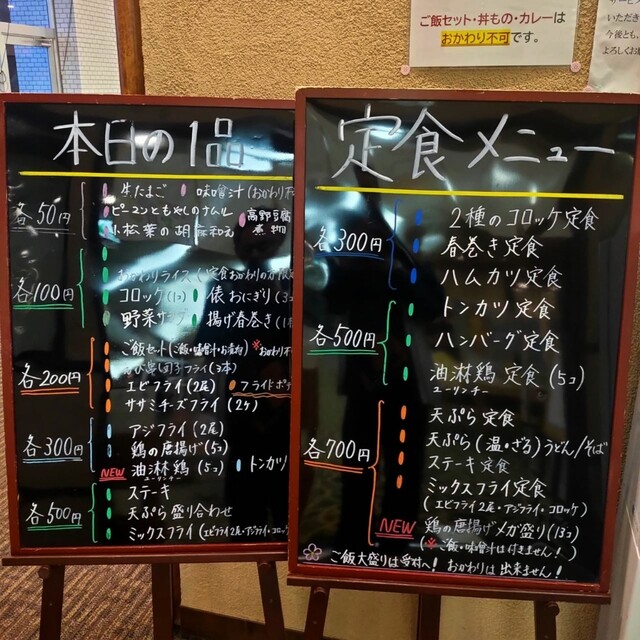 ご飯セット・丼もの・カレーは
おかわり不可です。
いただき
今後とも、
よろしくお
本日の1品
各50円
生たまご 味噌汁(おかわり不
ピーマンともやしのナムル 高野豆腐煮物
小松菜の胡麻和え
各100円
おかわりライス(定食おかわりの方
コロッケ(1コ) 俵おにぎり(3コ
野菜サラダ 揚げ春巻き(1
各200円
ご飯セット(ご飯・味噌汁・お漬物) ※おかわり不
団子フライ(3本)
エビフライ(2尾) フライドポテ
ササミチーズフライ(2ケ)
各300円
アジフライ(2尾)
鶏の唐揚げ(5コ)
NEW 油淋鶏(5コ) トンカツ
ユーリンチー
各500円
ステーキ
天ぷら盛り合わせ
ミックスフライ(エビフライ2尾・アジフライ・コロッケ
定食メニュー
各300円
2種のコロッケ定食
春巻き定食
ハムカツ定食
各500円
トンカツ定食
ハンバーグ定食
油淋鶏定食(5コ)
ユーリンチー
各700円
天ぷら定食
天ぷら(温・ざる)うどん/そば
ステーキ定食
ミックスフライ定食
(エビフライ2尾・アジフライ・コロッケ)
NEW 鶏の唐揚げメガ盛り(13コ)
(※ご飯・味噌汁は付きません!)
ご飯大盛りは受付へ! おかわりは出来ません!